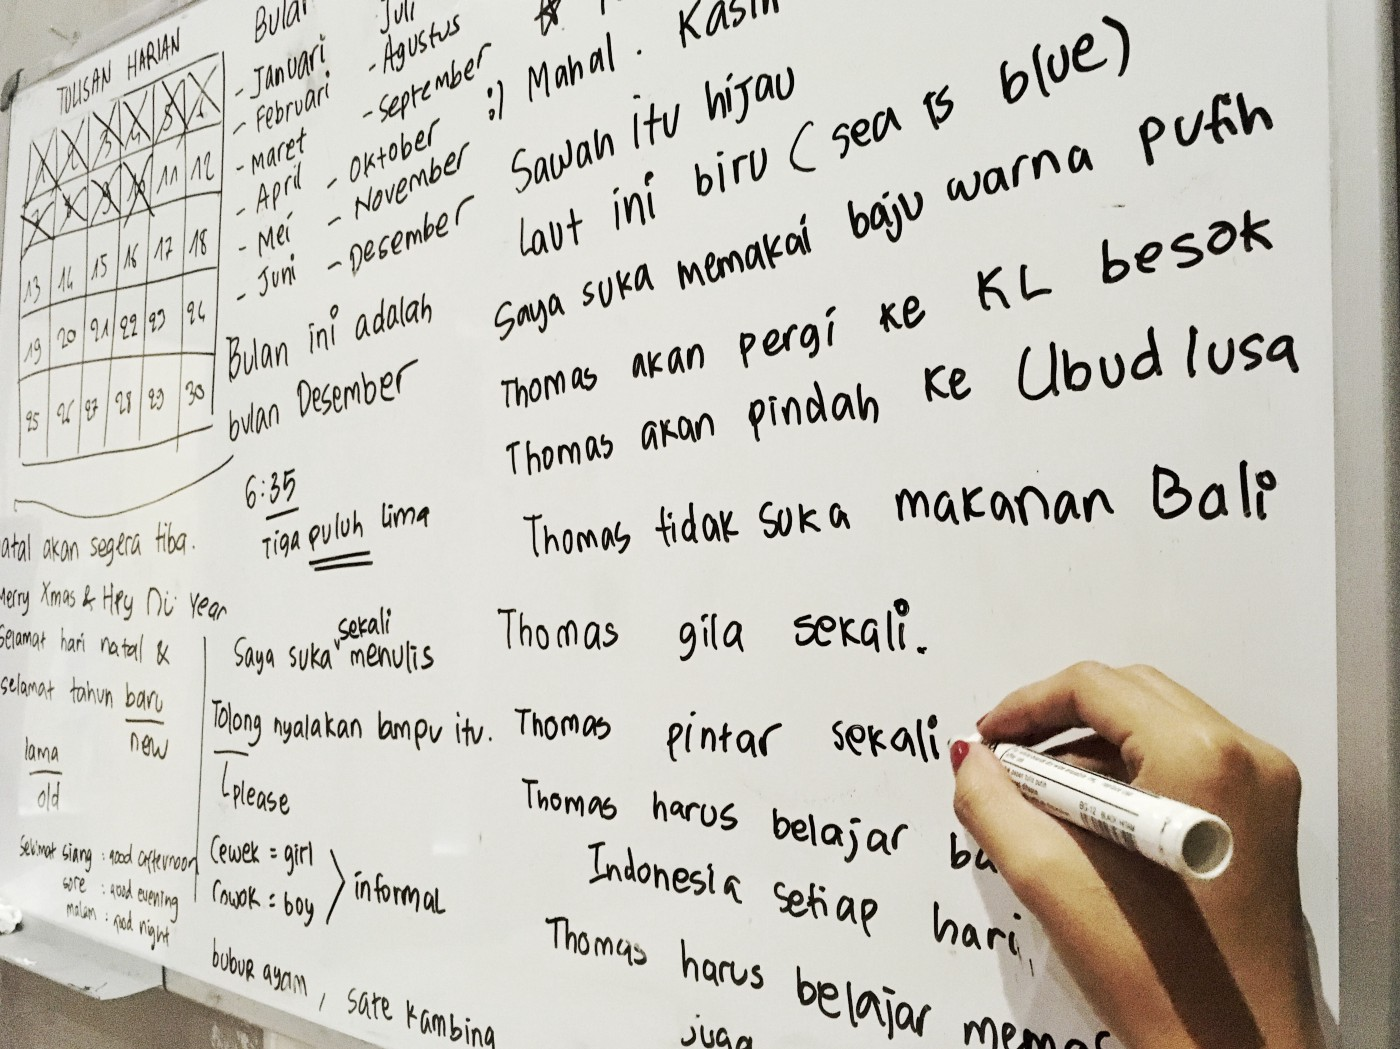 TULISAN HARIAN
1 2 3 4 5 6
7 8 9 10 11 12
13 14 15 16 17 18
19 20 21 22 23 24
25 26 27 28 29 30
atal akan segera tiba.
Merry Xmas & Hpy Year
selamat hari natal &
selamat tahun baru
new
lama
old
siang : good afternoon
sore : good evening
malam : good night
Bulan
- Januari
- Februari
- Maret
- April
- Mei
- Juni
Juli
- Agustus
- September
- Oktober
- November
- Desember
Bulan ini adalah
bulan Desember
6:35
Tiga puluh lima
sekali
Saya suka menulis
Tolong nyalakan lampu itu.
please
Cewek = girl
Cowok = boy
informal
bubur ayam, sate kambing
:) Mahal. Kasih
Sawah itu hijau
Laut ini biru (sea is blue)
Saya suka memakai baju warna putih
Thomas akan pergi ke KL besok
Thomas akan pindah ke Ubud lusa
Thomas tidak suka makanan Bali
Thomas gila sekali.
Thomas pintar sekali
Thomas harus belajar ba
Indonesia setiap hari,
Thomas harus belajar memas
juga